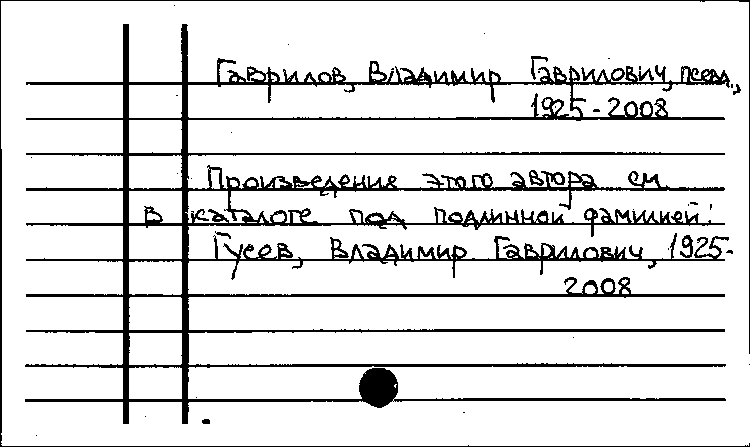 Гаврилов, Владимир Гаврилович, псевд.,
1925-2008
Произведение этого автора см.
в каталоге под подлинной фамилией:
Гусев, Владимир Гаврилович, 1925-
2008